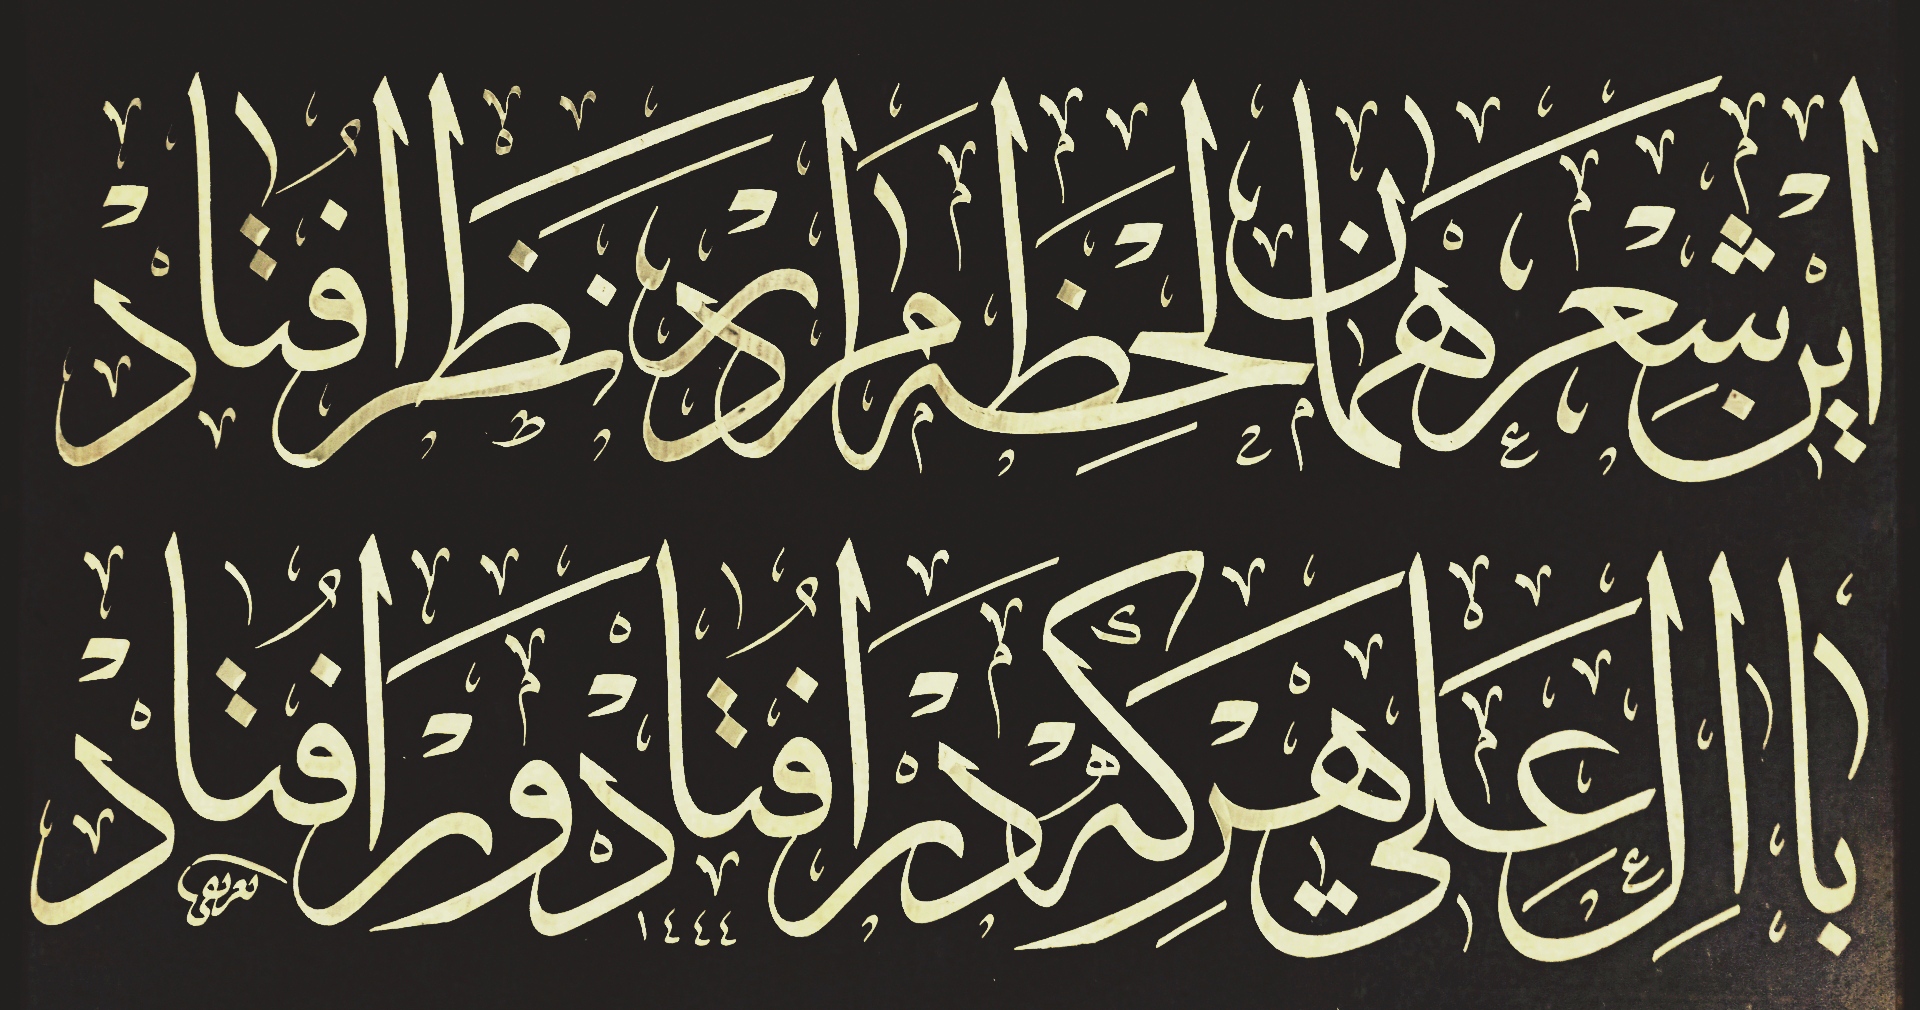 این شعر همان لحظه مرا در نظر افتاد
با ال علی هر که در افتاد ور افتاد
١٤٤٤